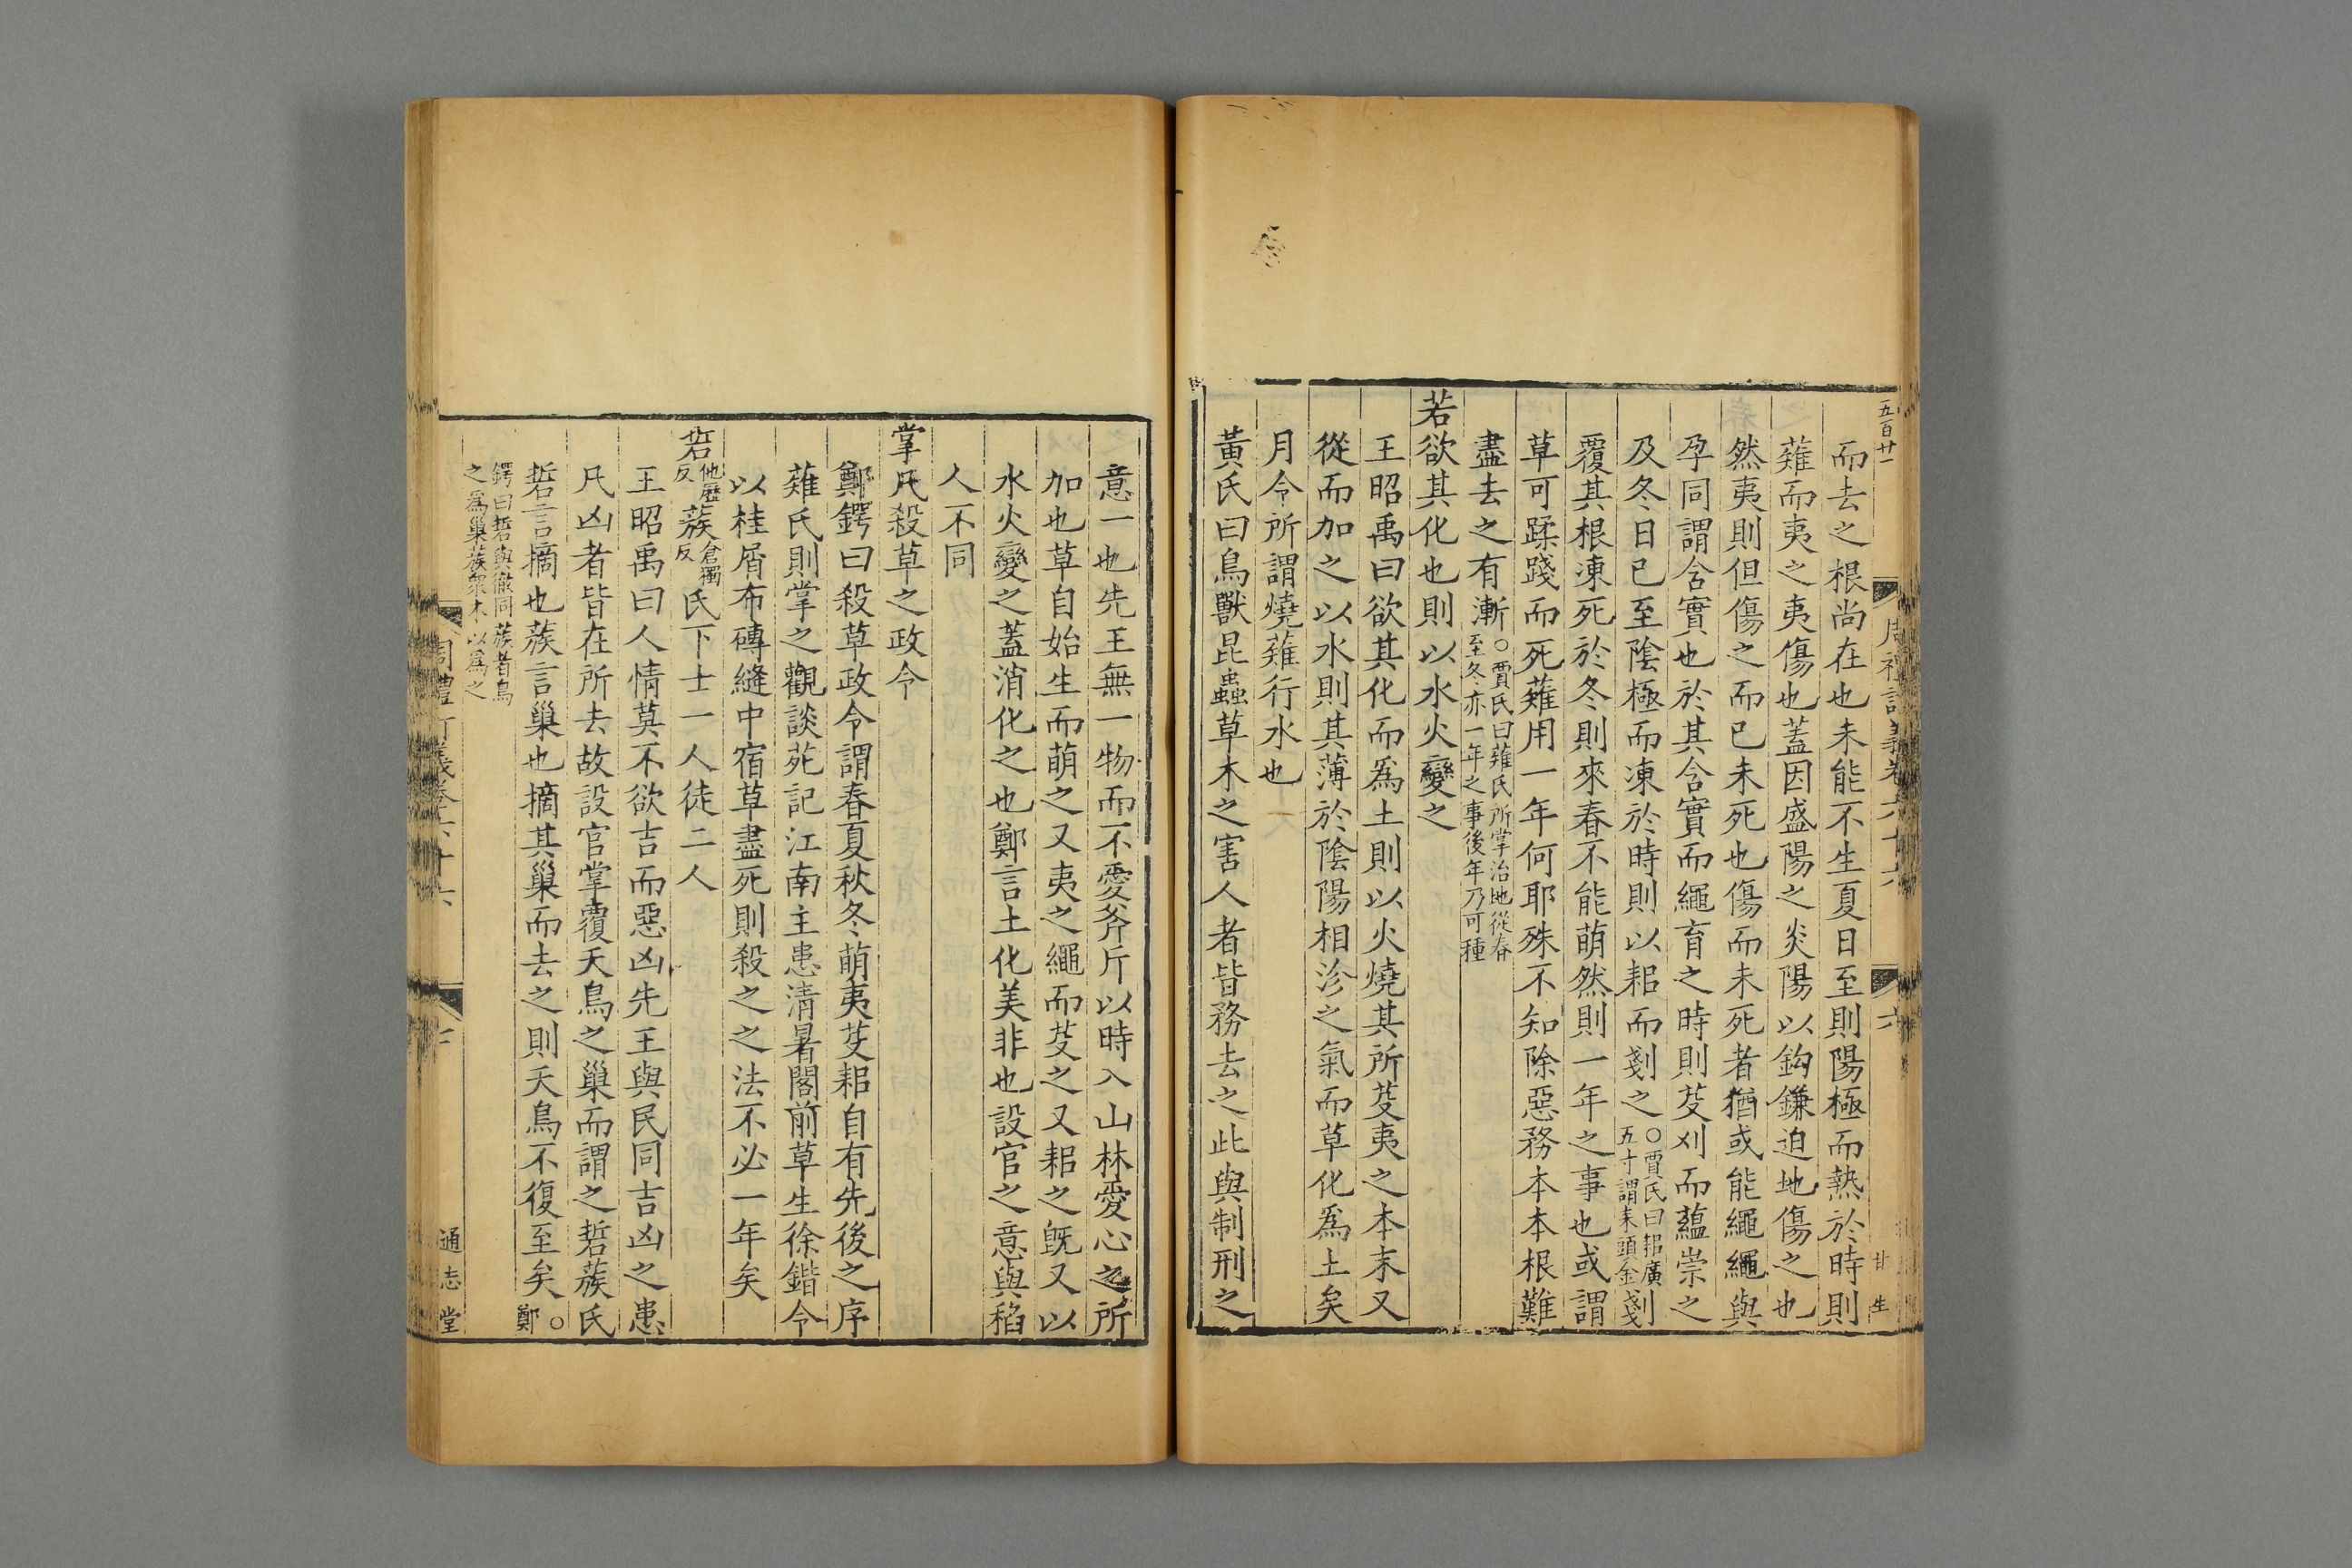 五百廿一
周禮訂義卷六十六
六
甘生
而去之根尚在也未能不生夏日至則陽極而熱於時則
薙而夷之夷傷也蓋因盛陽之炎陽以鈎鎌迫地傷之也
然夷則但傷之而已未死也傷而未死者猶或能繩繩與
孕同謂含實也於其含實而繩育之時則芟刈而蘊崇之
及冬日已至陰極而凍於時則以耜而剗之○賈氏曰耜廣五寸謂耒頭金剗剗
覆其根凍死於冬則來春不能萌然則一年之事也或謂
草可蹂踐而死薙用一年何耶殊不知除惡務本本根難
盡去之有漸○賈氏曰薙氏所掌治地從春至冬亦一年之事後年乃可種
若欲其化也則以水火變之
王昭禹曰欲其化而爲土則以火燒其所芟夷之本末又
從而加之以水則其薄於陰陽相沴之氣而草化爲土矣
月令所謂燒薙行水也
黃氏曰鳥獸昆蟲草木之害人者皆務去之此與制刑之
意一也先王無一物而不愛斧斤以時入山林愛心之所
加也草自始生而萌之又夷之繩而芟之又耜之旣又以
水火變之蓋消化之也鄭言土化美非也設官之意與稻
人不同
掌凡殺草之政令
鄭鍔曰殺草政令謂春夏秋冬萌夷芟耜自有先後之序
薙氏則掌之觀談苑記江南主患清暑閣前草生徐鍇令
以桂屑布磚縫中宿草盡死則殺之之法不必一年矣
硩他歷反蔟倉獨反氏下士一人徒二人
王昭禹曰人情莫不欲吉而惡凶先王與民同吉凶之患
凡凶者皆在所去故設官掌覆夭鳥之巢而謂之硩蔟氏
硩言摘也蔟言巢也摘其巢而去之則夭鳥不復至矣○鄭
鍔曰硩與徹同蔟者鳥之爲巢蔟衆木以爲之
周禮訂義卷六十六
七
通志堂